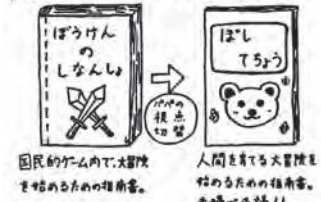 ぼうけん
の
しなんしょ
パパの
視点
切替
ぼし
てちょう
国民的ゲーム内で、大冒険
を始めるための指南書。
人間を育てる大冒険を
始めるための指南書。